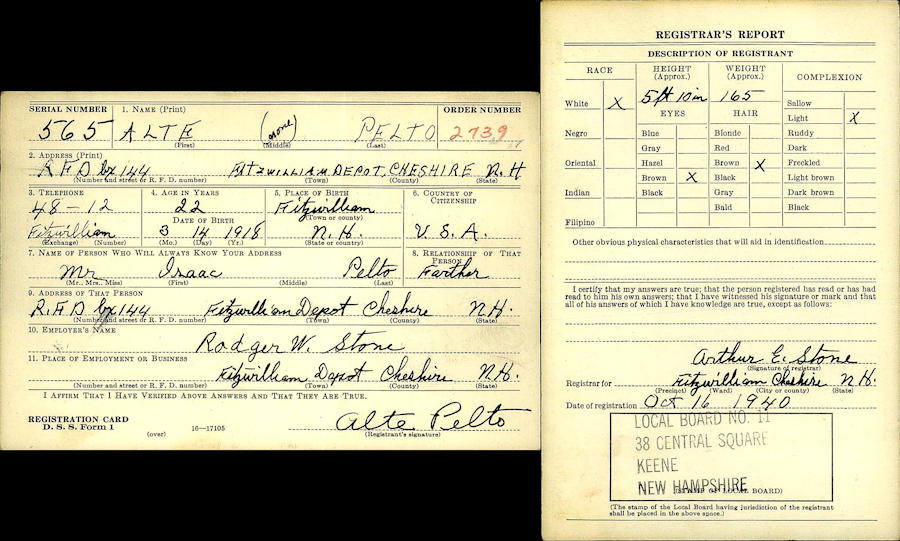 SERIAL NUMBER 1. NAME (Print) ORDER NUMBER
565 ALTE (none) PELTO 2739
(First) (Middle) (Last)
2. ADDRESS (Print)
R.F.D bx 144 FITZWILLIAM DEPOT, CHESHIRE N.H
(Number and street or R. F. D. number) (Town) (County) (State)
3. TELEPHONE 4. AGE IN YEARS 5. PLACE OF BIRTH 6. COUNTRY OF CITIZENSHIP
48-12 22 Fitzwilliam
DATE OF BIRTH (Town or county)
Fitzwilliam 3 14 1918 N.H. U.S.A.
(Exchange) (Number) (Mo.) (Day) (Yr.) (State or country)
7. NAME OF PERSON WHO WILL ALWAYS KNOW YOUR ADDRESS 8. RELATIONSHIP OF THAT PERSON
Mr Isaac Pelto Farther
(Mr., Mrs., Miss) (First) (Middle) (Last)
9. ADDRESS OF THAT PERSON
R.F.D bx 144 Fitzwilliam Depot Cheshire N.H.
(Number and street or R. F. D. number) (Town) (County) (State)
10. EMPLOYER'S NAME
Rodger W. Stone
11. PLACE OF EMPLOYMENT OR BUSINESS
Fitzwilliam Depot Cheshire N.H.
(Number and street or R. F. D. number) (Town) (County) (State)
I AFFIRM THAT I HAVE VERIFIED ABOVE ANSWERS AND THAT THEY ARE TRUE.
REGISTRATION CARD
D. S. S. Form 1 (over) 16—17105
Alte Pelto
(Registrant's signature)
REGISTRAR'S REPORT
DESCRIPTION OF REGISTRANT
RACE HEIGHT (Approx.) WEIGHT (Approx.) COMPLEXION
White X 5 ft 10 in 165 Sallow
EYES HAIR Light X
Negro Blue Blonde Ruddy
Gray Red Dark
Oriental Hazel Brown X Freckled
Brown X Black Light brown
Indian Black Gray Dark brown
Bald Black
Filipino
Other obvious physical characteristics that will aid in identification
I certify that my answers are true; that the person registered has read or has had
read to him his own answers; that I have witnessed his signature or mark and that
all of his answers of which I have knowledge are true, except as follows:
Arthur E. Stone
(Signature of registrar)
Registrar for Fitzwilliam Cheshire N.H.
(Precinct) (Ward) (City or county) (State)
Date of registration Oct 16 1940
LOCAL BOARD NO. 11
38 CENTRAL SQUARE
KEENE
NEW HAMPSHIRE
(STAMP OF LOCAL BOARD)
(The stamp of the Local Board having jurisdiction of the registrant
shall be placed in the above space.)